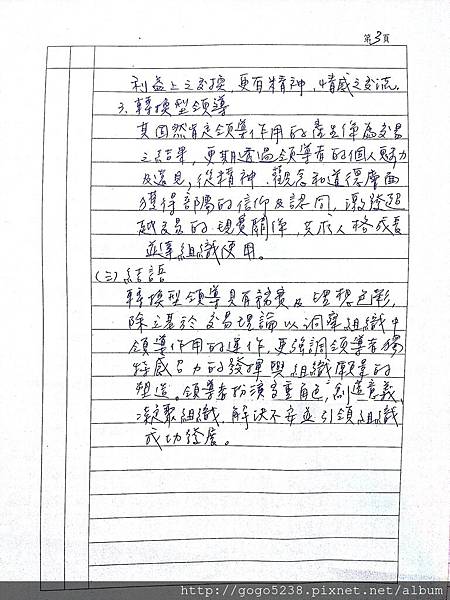 第3頁
利益上之交換,更有精神、情感之交流。
3.轉換型領導
其固然肯定領導作用的產生係為交易
之結果,更期透過領導者的個人魅力
及遠見,從精神、觀念和道德層面
獲得部屬的信仰及認同,激發超
越交易的現實關係,共求人格成長
並達組織使用。
(三)結語
轉換型領導具有務實及理想色彩,
除立基於交易理論以洞察組織中
領導作用的運作,更強調領導者獨
特感召力的發揮與組織願景的
塑造。領導者扮演多重角色,創造意義、
凝聚組織、解決不安並引領組織
成功發展。
http://gogo5238.pixnet.net/album